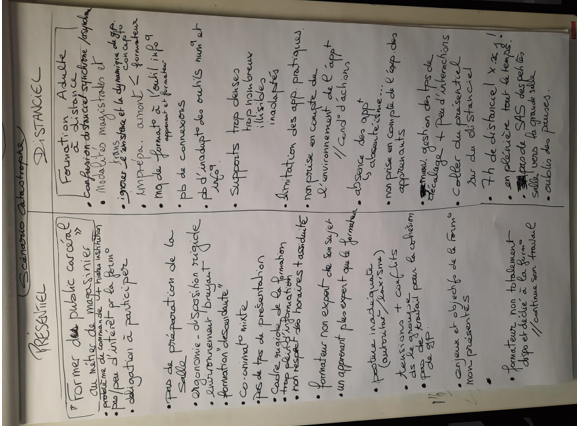 Scénario catastrophe
PRESENTIEL
"Former du public carcéral
au métier de magasinier"
• problème de commande
• pas/peu d'intérêt pr la form°
• obligation à participer
• pas de préparation de la
salle
• ergonomie - disposition rigide
• environnement bruyant
formation "descendante"
• Co-animato mixte
• Pas de tps de présentation
• Cadre rigide de la formation
trop plein d'information
• non respect des horaires + assiduité
• formateur non expert de son sujet
• un apprenant plus expert que le formateur
• posture inadéquate
tensions + conflits
ds le groupe
• pas de travail pour la cohésion
de gp
• enjeux et objectifs de la form°
non présentés
• formateur non totalement
dispo et dédié à la form°
// continue son travail
DISTANCIEL
Formation Adulte
à distance
• confusion distanciel synchrone/asynchrone
• modalités magistrales et
transmissives
• ignorer le sondage et la dynamique de gp
• imprépa.
formateur
mq de formato à l'outil info°
apprenant et formateur
• pb de connexions
• pb d'inadapto des outils num° et
info°
• supports trop denses
trop nombreux
illisibles
inadaptés
• limitation des app pratiques
• non prise en compte de
l'environnement de l'appt
// cond° d'actions
• absence des appt
↳ absentéisme...
• non prise en compte de l'exp des
apprenants
gestion du tps de
décalage + peu d'interactions
• coller du présentiel
sur du distanciel
• 7h de distanciel x x j !
• en plénière tout le temps.
• pas de SAS des petites
salles vers la grande salle
• oublis des pauses.